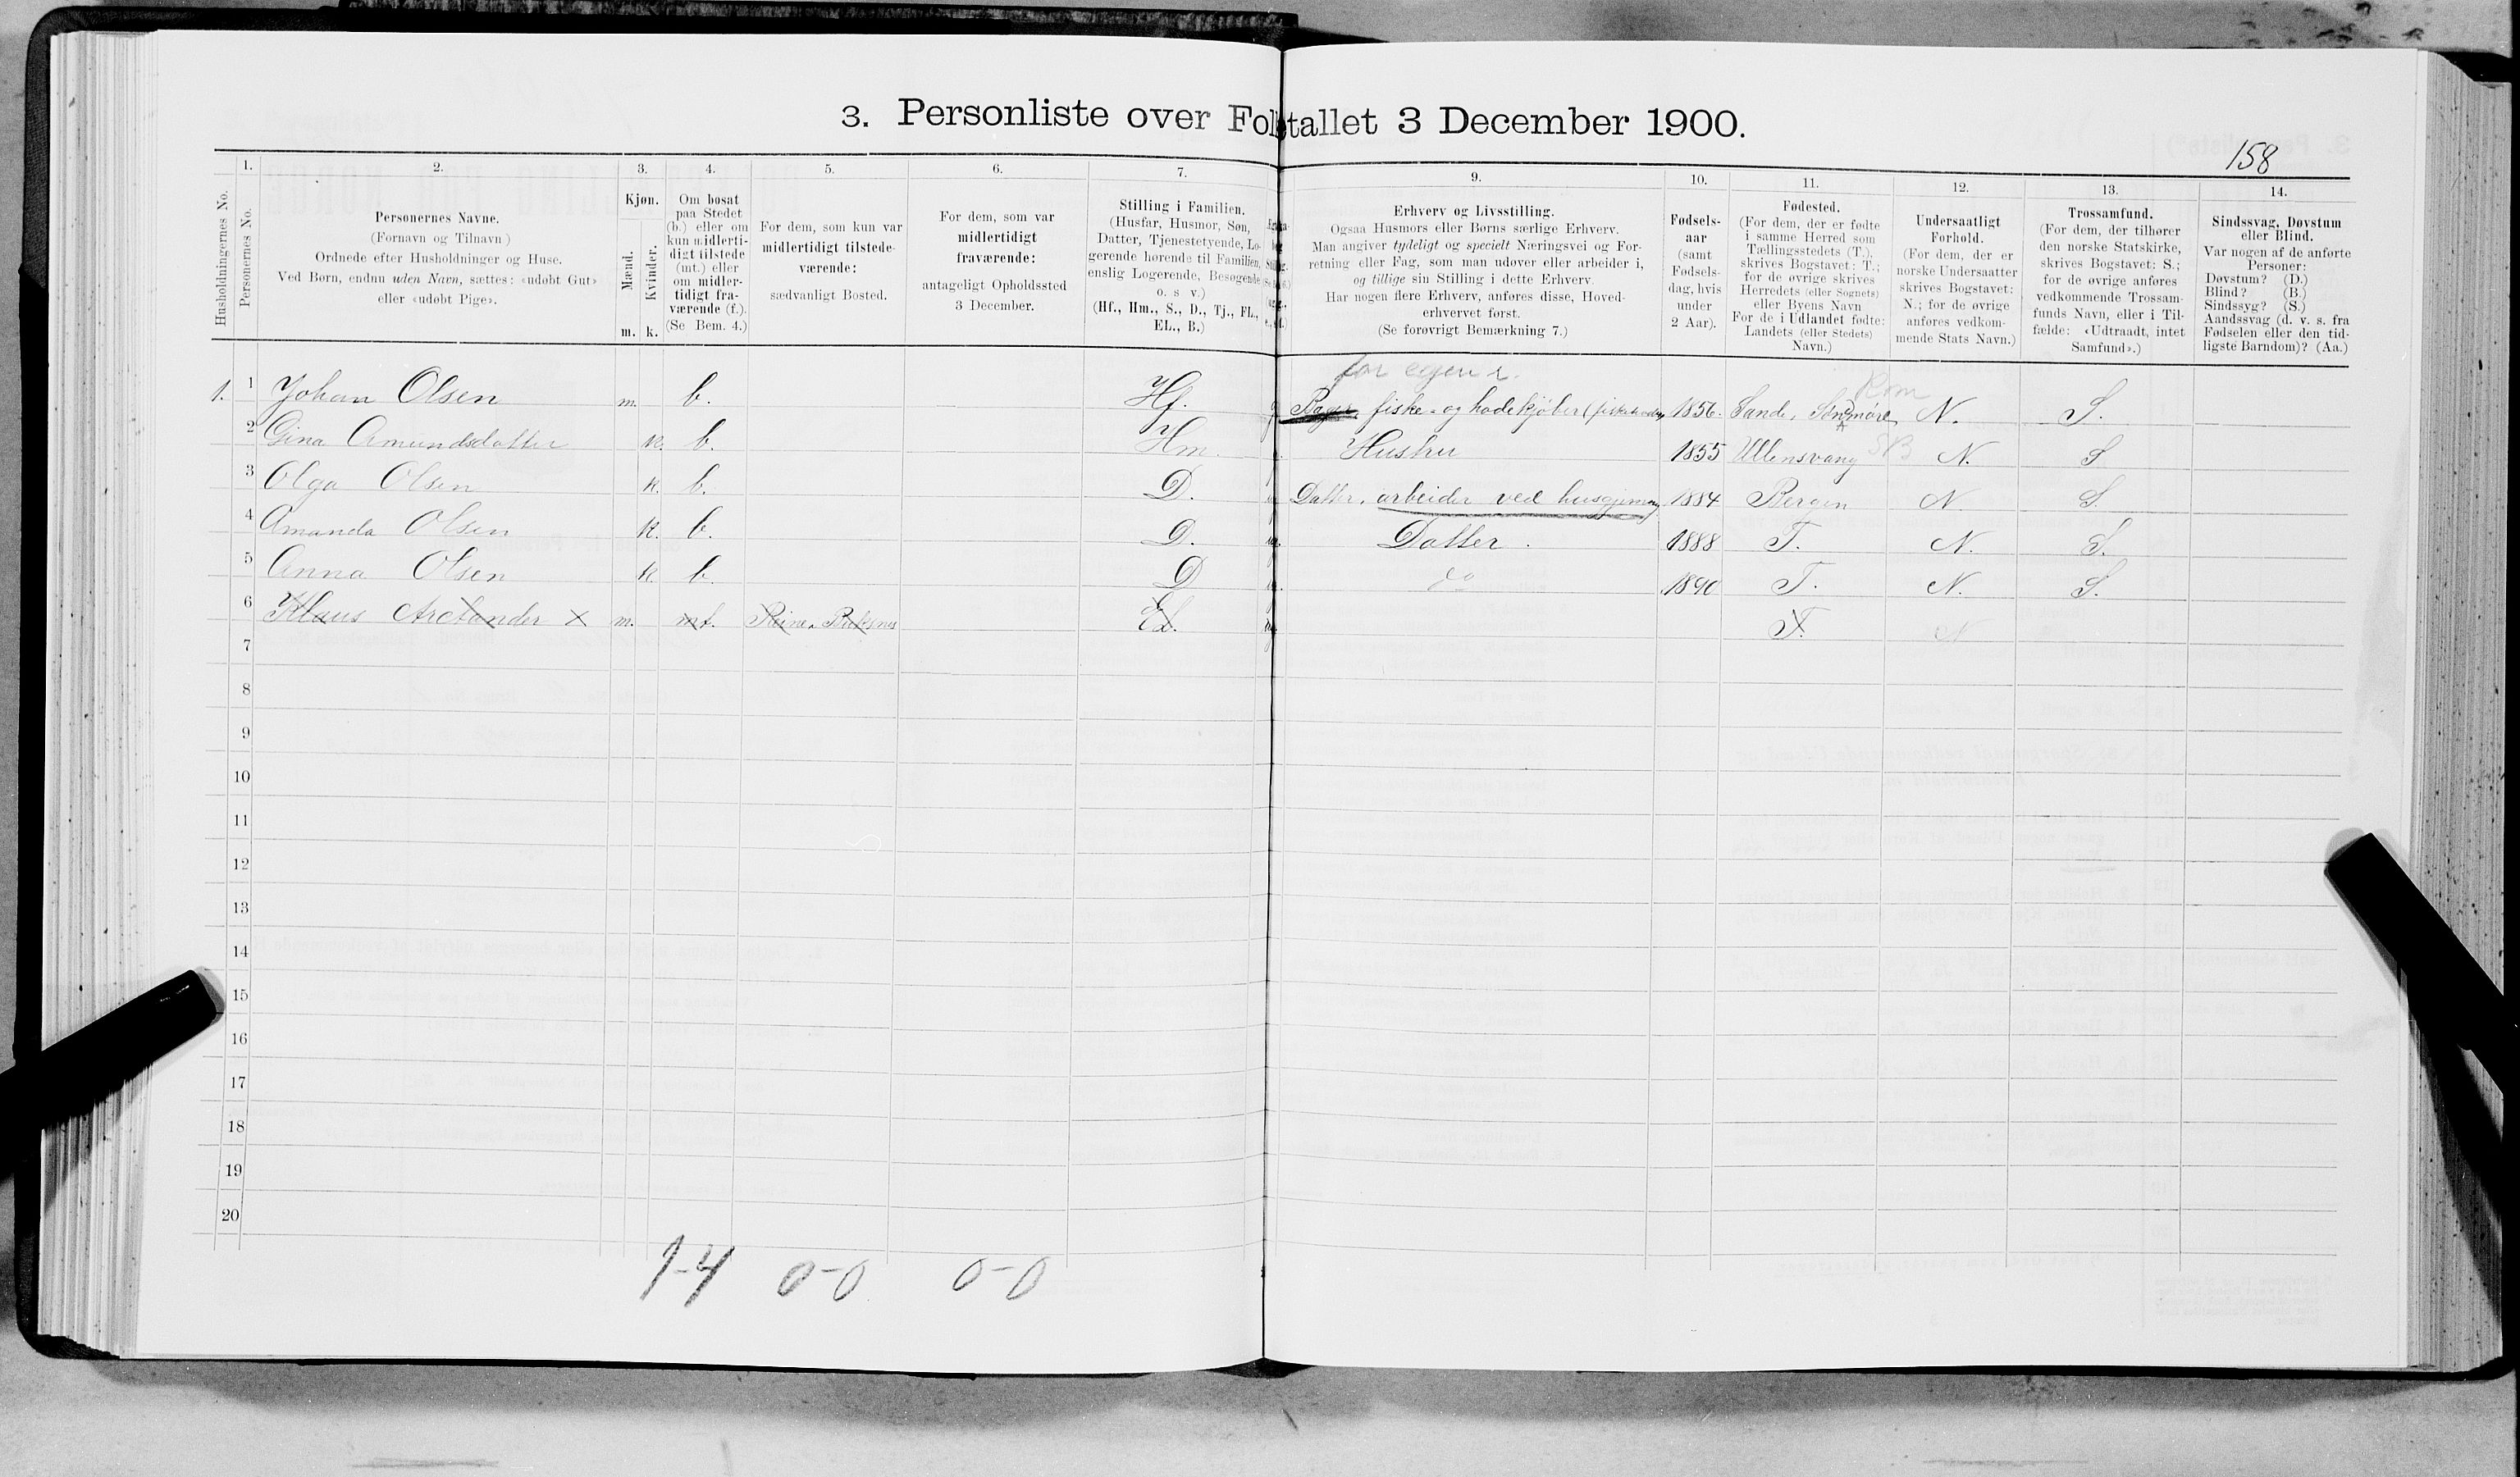 3. Personliste over Folketallet 3 December 1900.
158
1. 2. 3. 4. 5. 6. 7. 9. 10. 11. 12. 13. 14.
Husholdningernes No.
Personernes No.
Personernes Navne.
(Fornavn og Tilnavn)
Ordnede efter Husholdninger og Huse.
Ved Børn, endnu uden Navn, sættes: «udøbt Gut»
eller «udøbt Pige».
Kjøn.
Mænd.
Kvinder.
m. k.
Om bosat
paa Stedet
(b.) eller om
kun midlerti-
digt tilstede
(mt.) eller
om midler-
tidigt fra-
værende (f.).
(Se Bem. 4.)
For dem, som kun var
midlertidigt tilstede-
værende:
sædvanligt Bosted.
For dem, som var
midlertidigt
fraværende:
antageligt Opholdssted
3 December.
Stilling i Familien.
(Husfar, Husmor, Søn,
Datter, Tjenestetyende, Lo-
gerende hørende til Familien,
enslig Logerende, Besøgende
o. s v.)
(Hf., Hm., S., D., Tj., FL.,
EL., B.)
Erhverv og Livsstilling.
Ogsaa Husmors eller Børns særlige Erhverv.
Man angiver tydeligt og specielt Næringsvei og For-
retning eller Fag, som man udøver eller arbeider i,
og tillige sin Stilling i dette Erhverv.
Har nogen flere Erhverv, anføres disse, Hoved-
erhvervet først.
(Se forøvrigt Bemærkning 7.)
Fødsels-
aar
(samt
Fødsels-
dag, hvis
under
2 Aar).
Fødested.
(For dem, der er fødte
i samme Herred som
Tællingsstedets (T.),
skrives Bogstavet: T.;
for de øvrige skrives
Herredets (eller Sognets)
eller Byens Navn
For de i Udlandet fødte:
Landets (eller Stedets)
Navn.)
Undersaatligt
Forhold.
(For dem, der er
norske Undersaatter
skrives Bogstavet:
N.; for de øvrige
anføres vedkom-
mende Stats Navn.)
Trossamfund.
(For dem, der tilhører
den norske Statskirke,
skrives Bogstavet: S.;
for de øvrige anføres
vedkommende Trossam-
funds Navn, eller i Til-
fælde: «Udtraadt, intet
Samfund».)
Sindssvag, Døvstum
eller Blind.
Var nogen af de anførte
Personer:
Døvstum? (D.)
Blind? (B.)
Sindssyg? (S.)
Aandssvag (d. v. s. fra
Fødselen eller den tid-
ligste Barndom)? (Aa.)
for egen r.
Rom
1. 1 Johan Olsen m. b. Hf. fiske- og hodekjøber 1856. Sande, Søndmøre, N. S.
2 Gina Amundsdatter k. b. Hm. Hustru 1855 Ullensvang SB N. S
3 Olga Olsen k. b. D. Datter, arbeider ved husgjerning 1884 Bergen N. S.
4 Amanda Olsen k. b. D. Datter. 1888 T. N. S.
5 Anna Olsen k b. D do 1890 T. N. S.
6 Klaus Arctander X m. mt. Reine, Buksnes EL. T. N
7
8
9
10
11
12
13
14
15
16
17
18
19
20
1-4 0-0 0-0